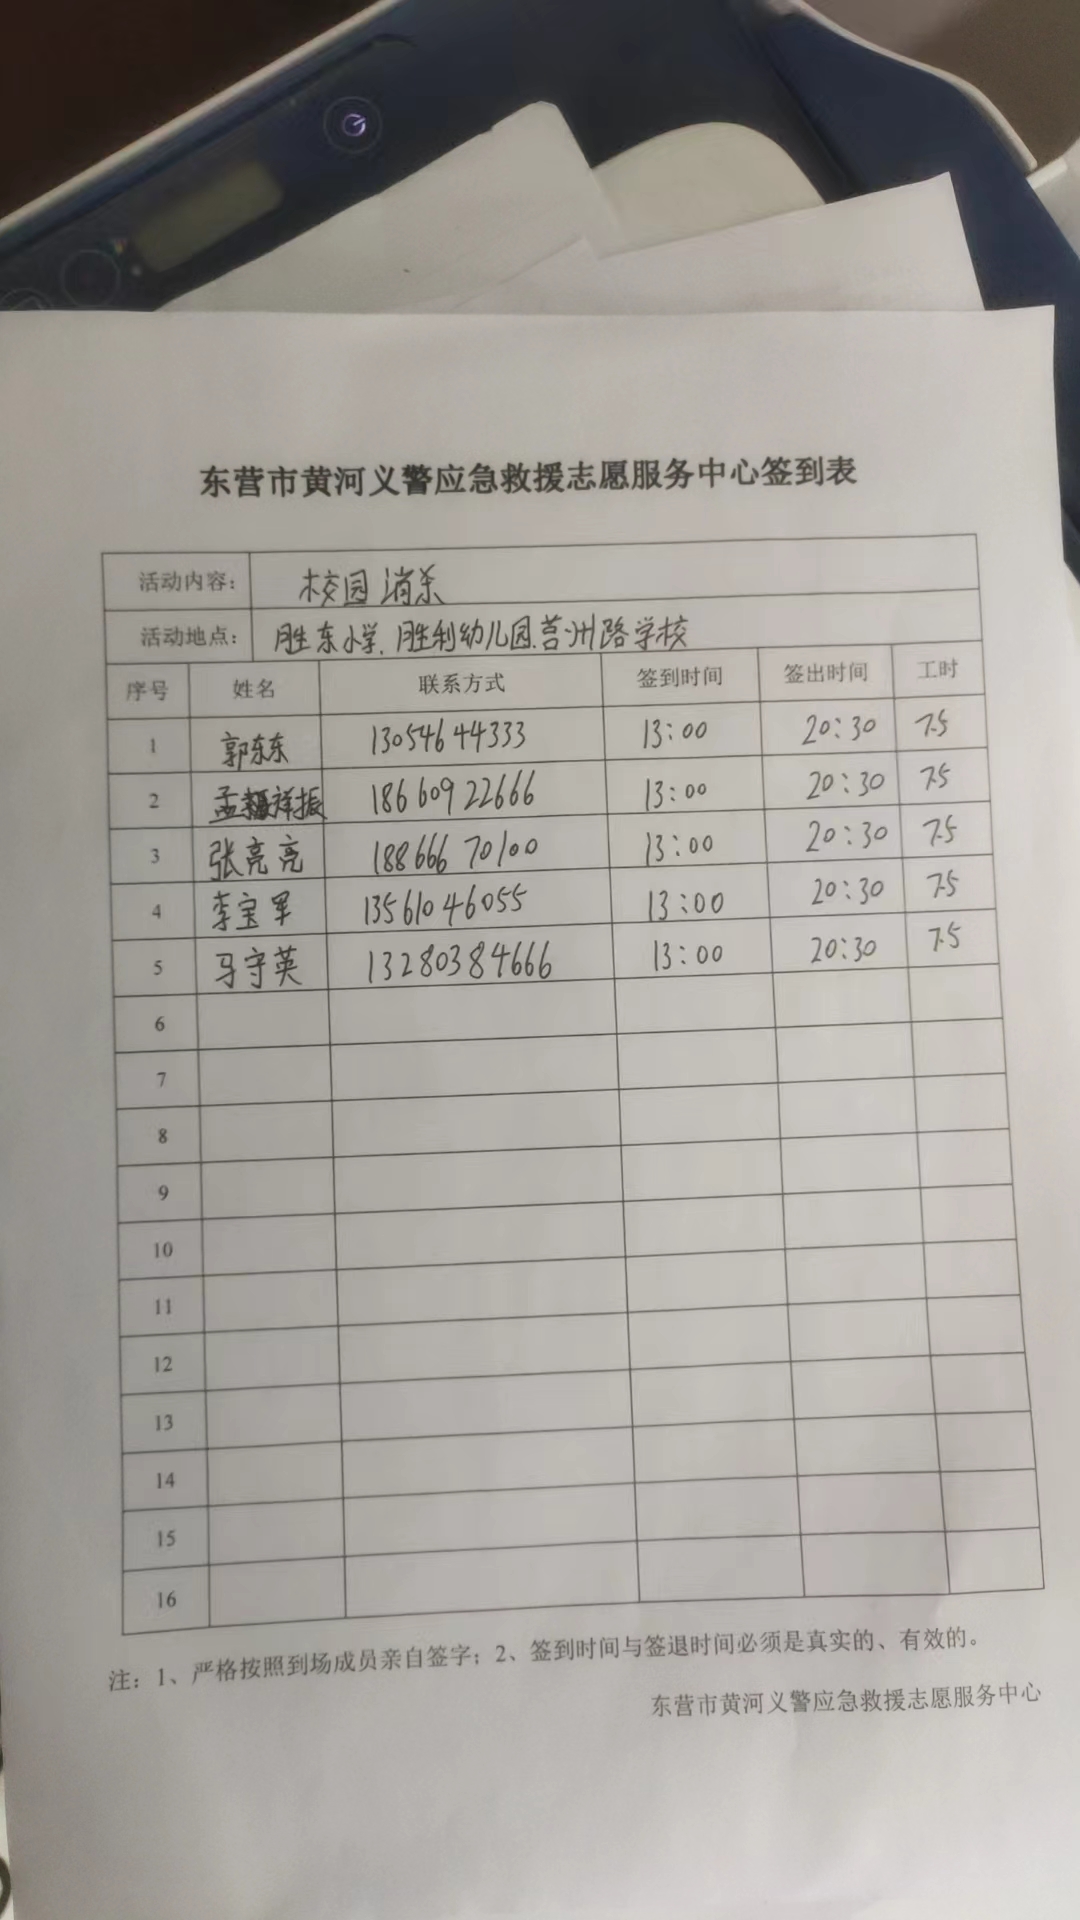 东营市黄河义警应急救援志愿服务中心签到表
活动内容： 校园消杀
活动地点： 胜东小学、胜利幼儿园、莒州路学校
序号 姓名 联系方式 签到时间 签出时间 工时
1 郭东东 13054644333 13:00 20:30 7.5
2 孟祥振 18660922666 13:00 20:30 7.5
3 张亮亮 18866670100 13:00 20:30 7.5
4 李宝军 13561046055 13:00 20:30 7.5
5 马守英 13280384666 13:00 20:30 7.5
6
7
8
9
10
11
12
13
14
15
16
注：1、严格按照到场成员亲自签字；2、签到时间与签退时间必须是真实的、有效的。
东营市黄河义警应急救援志愿服务中心